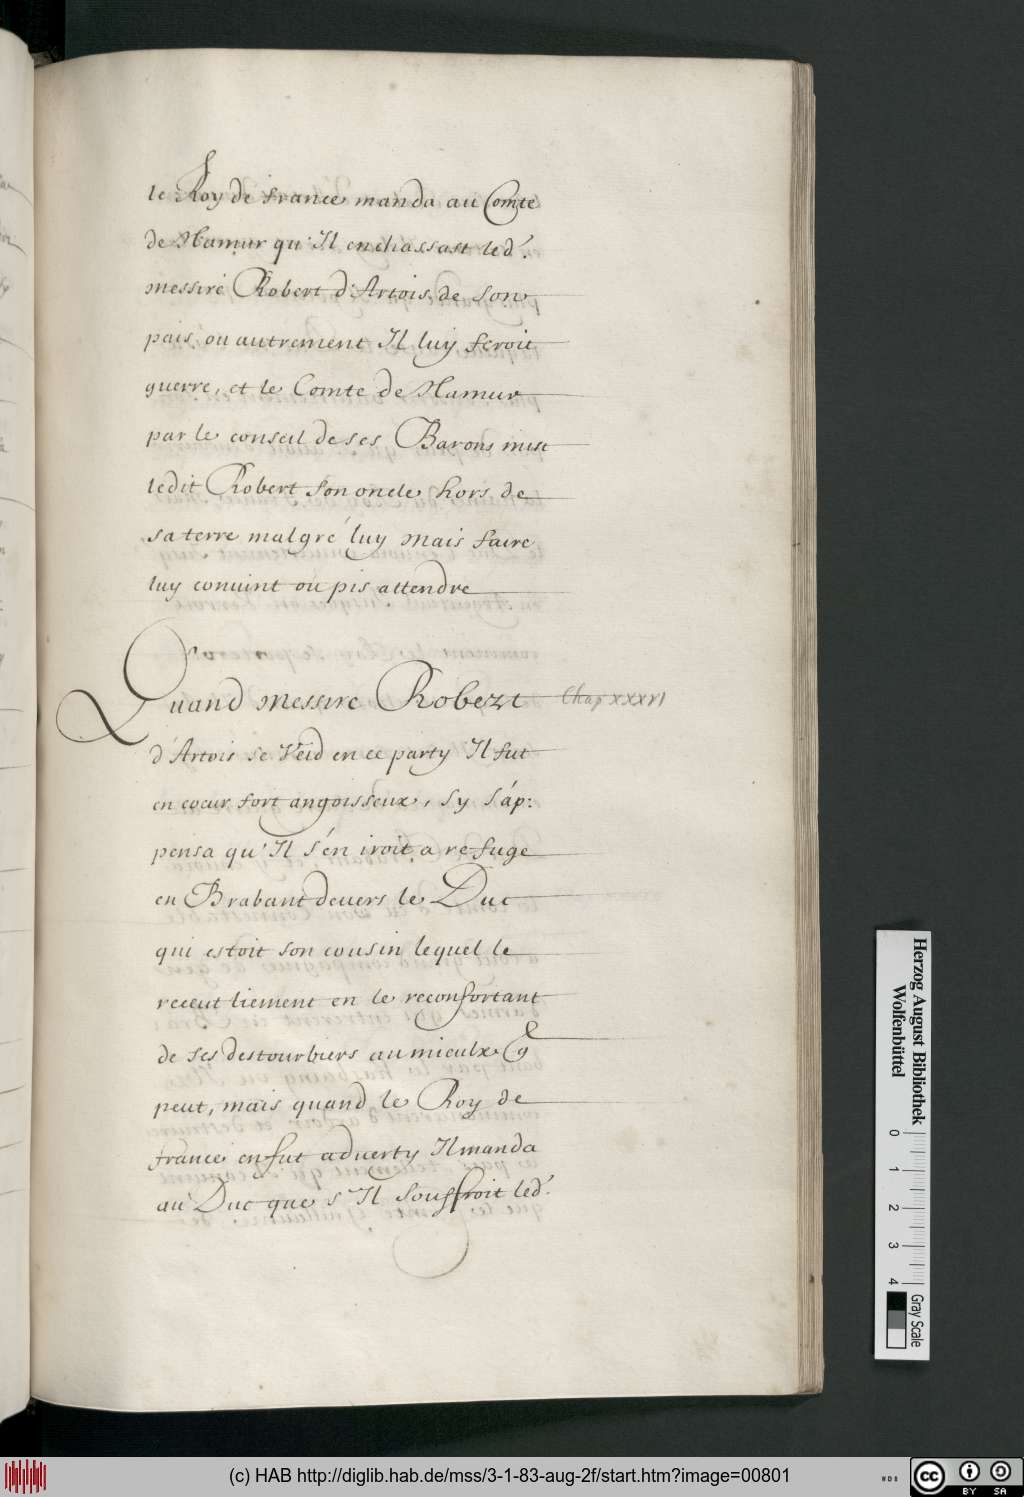 le Roy de france manda au Comte
de Namur qu'Il enchassast led.
messire Robert d'Artois de son
pais, ou autrement Il luy feroit
guerre, et le Comte de Namur
par le conseil de ses Barons mist
ledit Robert son oncle hors de
sa terre malgré luy mais faire
luy convint ou pis attendre
Quand messire Robert
Chap XXXVI
d'Artois se Veid en ce party Il fut
en coeur fort angoisseux, sy s'ap:
pensa qu'Il s'en iroit a refuge
en Brabant devers le Duc
qui estoit son cousin lequel le
receut liement en le reconfortant
de ses destourbiers au mieulx q
peut, mais quand le Roy de
france en fut adverty Il manda
au Duc que s'Il souffroit led.
Herzog August Bibliothek
Wolfenbüttel
0 1 2 3 4
Gray Scale
(c) HAB http://diglib.hab.de/mss/3-1-83-aug-2f/start.htm?image=00801
WDB
cc BY SA